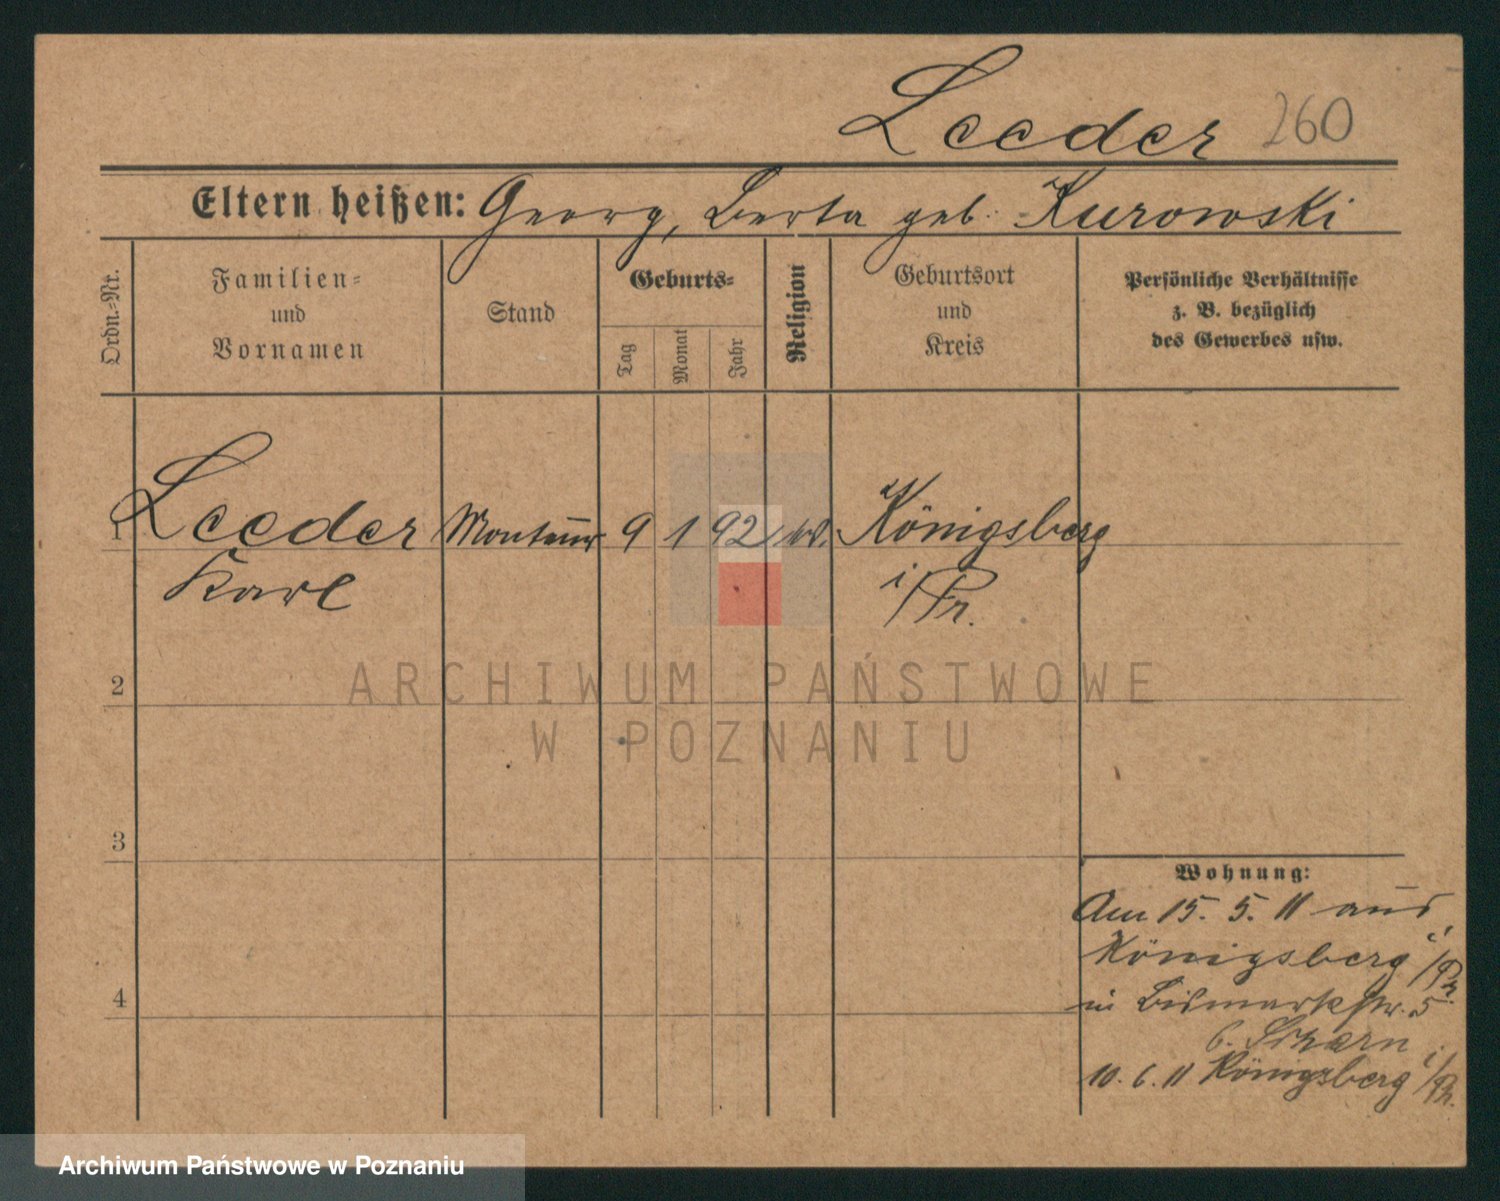 Leeder 260
Eltern heißen: Georg, Berta geb. Kurowski
Ordn.-Nr.
Familien-
und
Vornamen
Stand
Geburts-
Tag
Monat
Jahr
Religion
Geburtsort
und
Kreis
Persönliche Verhältnisse
z. B. bezüglich
des Gewerbes usw.
1 Leeder Monteur 9 1 92 Königsberg
Karl i/Pr.
2
3
4
Wohnung:
Am 15. 5. 11 aus
Königsberg i/Pr.
in Bismarkstr. 5
b.
10. 6. 11 Königsberg i/Pr.
ARCHIWUM PAŃSTWOWE
W POZNANIU
Archiwum Państwowe w Poznaniu